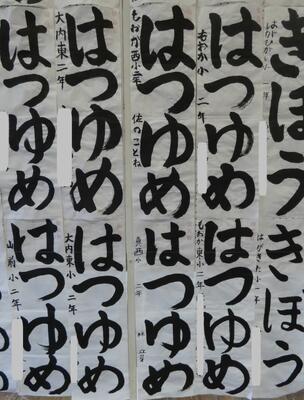 きぼう
はつゆめ
もおか小 二年
はつゆめ
もおか西小 二年
佐のことね
はつゆめ
大内東 二年
はつゆめ
きぼう
二年
はつゆめ
もおか東小 二年
はつゆめ
二年
はつゆめ
大内東小 二年
はつゆめ
山前小 二年